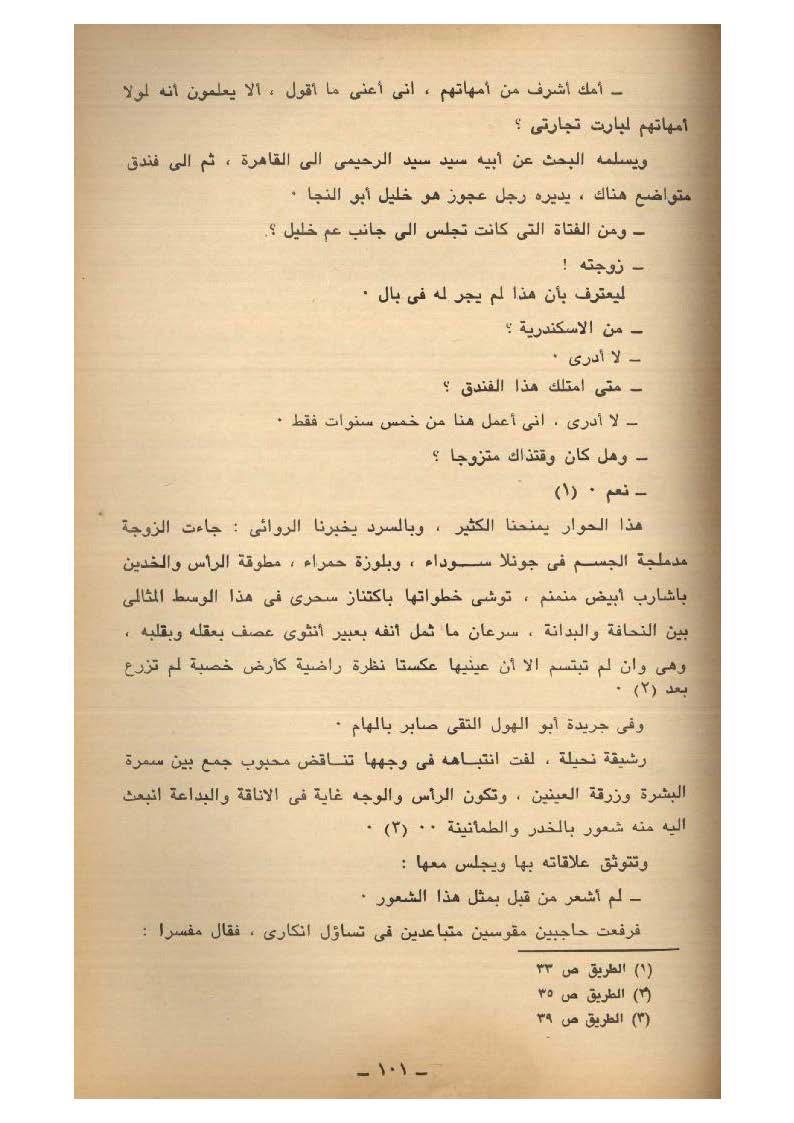 ـ أمك أشرف من أمهاتهم ، انى أعنى ما أقول ، ألا يعلمون أنه لولا
أمهاتهم لبارت تجارتى ؟
ويسلمه البحث عن أبيه سيد سيد الرحيمى الى القاهرة ، ثم الى فندق
متواضع هناك ، يديره رجل عجوز هو خليل أبو النجا ٠
ـ ومن الفتاة التى كانت تجلس الى جانب عم خليل ؟
ـ زوجته !
ليعترف بأن هذا لم يجر له فى بال ٠
ـ من الاسكندرية ؟
ـ لا أدرى ٠
ـ متى امتلك هذا الفندق ؟
ـ لا أدرى ، انى أعمل هنا من خمس سنوات فقط ٠
ـ وهل كان وقتذاك متزوجا ؟
ـ نعم ٠ (١)
هذا الحوار يمنحنا الكثير ، وبالسرد يخبرنا الروائى : جاءت الزوجة
مدملجة الجسـم فى جونلا ســوداء ، وبلوزة حمراء ، مطوقة الرأس والخدين
باشارب أبيض منمنم ، توشى خطواتها باكتناز سحرى فى هذا الوسط المثالى
بين النحافة والبدانة ، سرعان ما ثمل أنفه بعبير أنثوى عصف بعقله وبقلبه ،
وهى وان لم تبتسم الا أن عينيها عكستا نظرة راضية كأرض خصبة لم تزرع
بعد (٢) ٠
وفى جريدة أبو الهول التقى صابر بالهام ٠
رشيقة نحيلة ، لفت انتبـاهه فى وجهها تنـاقض محبوب جمع بين سمرة
البشرة وزرقة العينين ، وتكون الرأس والوجه غاية فى الاناقة والبداعة انبعث
اليه منه شعور بالخدر والطمأنينة ٠٠ (٣) ٠
وتتوثق علاقاته بها ويجلس معها :
ـ لم أشعر من قبل بمثل هذا الشعور ٠
فرفعت حاجبين مقوسين متباعدين فى تساؤل انكارى ، فقال مفسرا :
(١) الطريق ص ٣٣
(٢) الطريق ص ٣٥
(٣) الطريق ص ٣٩
ـ ١٠١ ـ